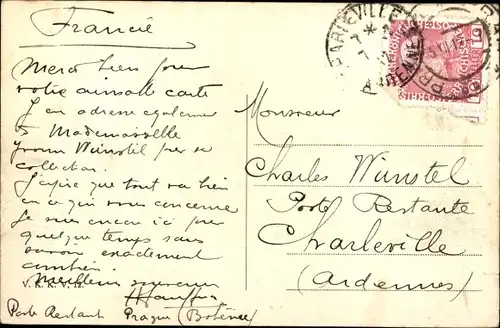 Francie
Merci bien pour
votre aimable carte
J'en adresse egalement
à Mademoiselle
Yvonne Wunstel pour sa
collection.
J'espère que tout va bien
en ce qui vous concerne
Je suis encore ici pour
quelque temps sans
savoir exactement
combien.
Meilleur souvenir
Poste Restante Prague (Bohême)
Monsieur
Charles Wunstel
Poste Restante
Charleville
(Ardennes)
CHARLEVILLE
ARDENNES